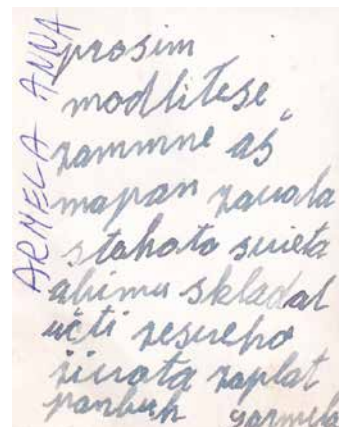 ARMELA ANNA
prosim
modlitese
zammne aš
mapan zavola
stohoto svieta
abimu skladal
učti zesveho
života zaplat
panbuh yarmela